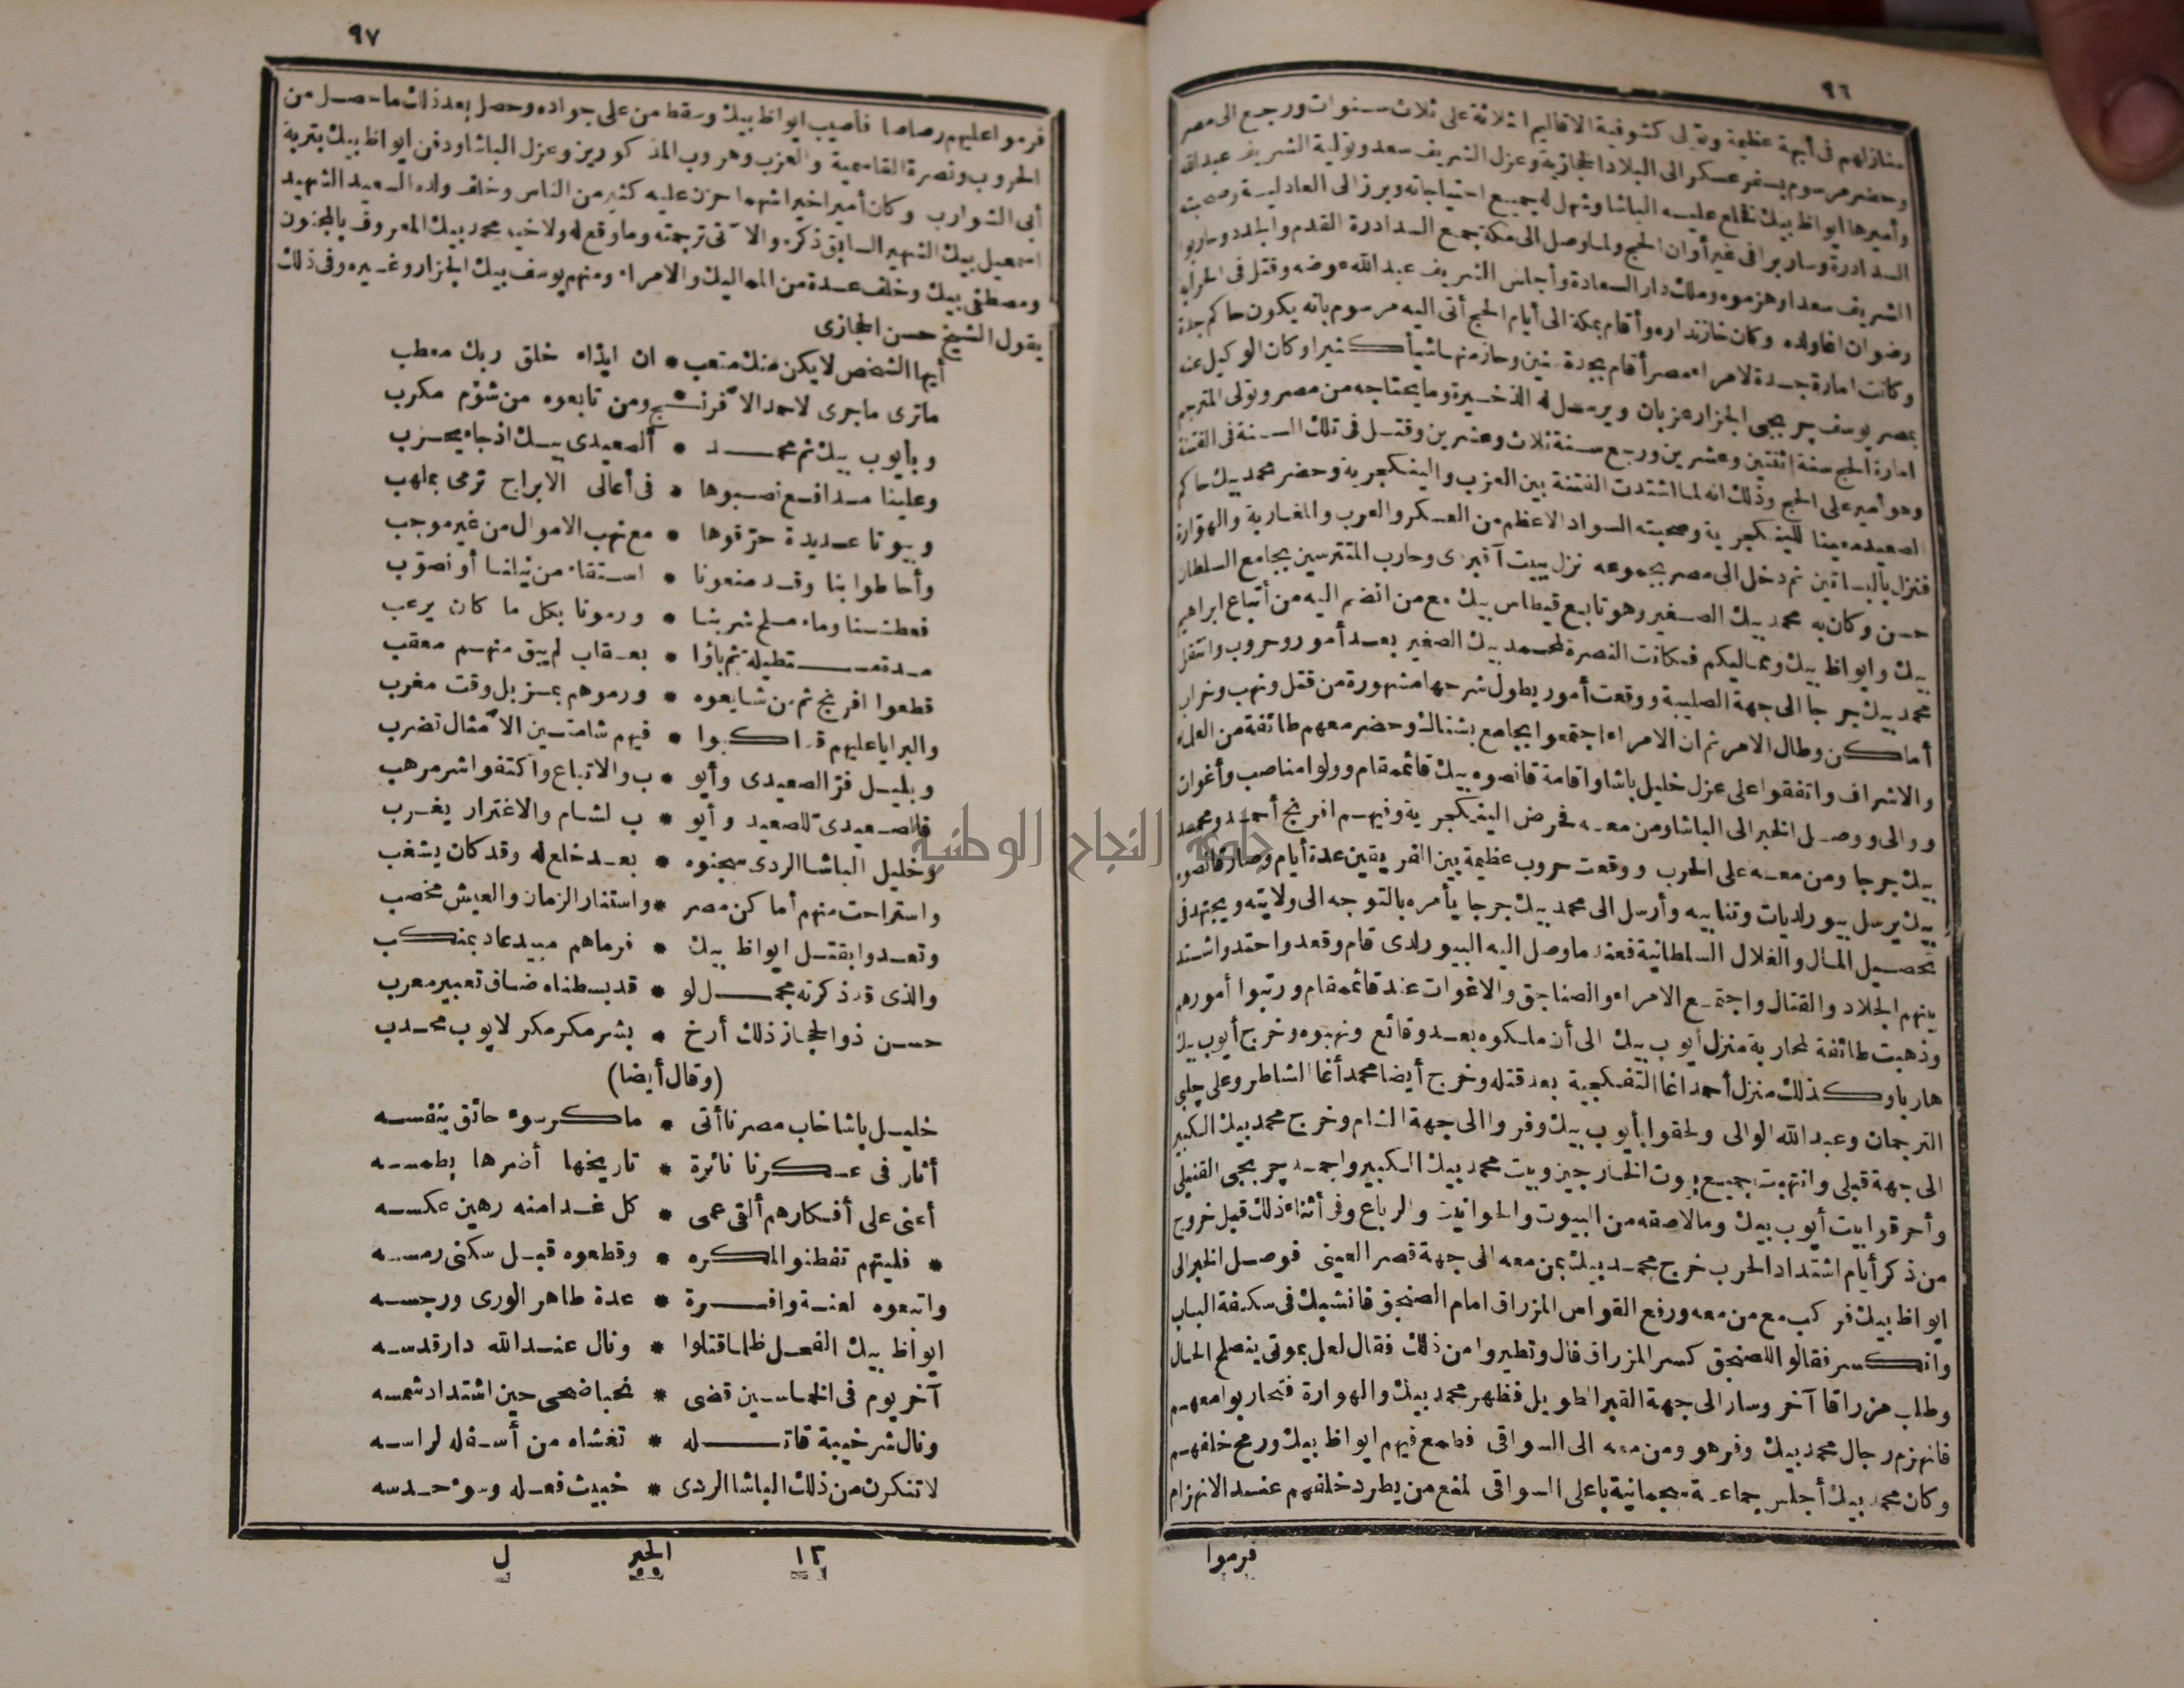 ٩٦
منازلهم فى أبهة عظيمة وتولى كشوفية الاقاليم الثلاثة على ثلاث سنوات ورجع الى مصر
وحضر مرسوم بسفر عسكر الى البلاد الحجازية وعزل الشريف سعد وتولية الشريف عبد الله
وأميرها ايواظ بيك فخلع عليه الباشا وشهل له جميع احتياجاته وبرز الى العادلية وصحبته
السدادرة وسار برا فى غير أوان الحج ولما وصل الى مكة جمع السدادرة القدم والجدد وحاربوا
الشريف سعدا وهزموه وملك دار السعادة وأجلس الشريف عبد الله عوضه وقتل فى الحرب
رضوان اغا ولده وكان خازنداره وأقام بمكة الى أيام الحج أتى اليه مرسوم بانه يكون حاكم جدة
وكانت امارة جدة لامراء مصر أقام بجدة سنين وحاز منها شيأ كثيرا وكان الوكيل عنه
بمصر يوسف جربجى الجزار عزبان ويرسل له الذخيرة وما يحتاجه من مصر وتولى المترجم
امارة الحج سنة اثنتين وعشرين ورجع سنة ثلاث وعشرين وقتل فى تلك السنة فى الفتنة
وهو أمير على الحج وذلك انه لما اشتدت الفتنة بين العزب والينكجرية وحضر محمد بيك حاكم
الصعيد معينا للينكجرية وصحبته السواد الاعظم من العسكر والعرب والمغاربة والهوارة
فنزل بالبساتين ثم دخل الى مصر بجموعه نزل ببيت آقبردى وحارب المتترسين بجامع السلطان
حسن وكان به محمد بيك الصغير وهو تابع قيطاس بيك مع من انضم اليه من أتباع ابراهيم
بيك وايواظ بيك ومماليكهم فكانت النصرة لمحمد بيك الصغير بعد أمور وحروب وانتقل
محمد بيك جرجا الى جهة الصليبة ووقعت أمور يطول شرحها مشهورة من قتل ونهب وخراب
أماكن وطال الامر ثم ان الامراء اجتمعوا بجامع بشتاك وحضر معهم طائفة من العلماء
والاشراف واتفقوا على عزل خليل باشا واقامة قانصوه بيك قائمقام وولوا مناصب وأغوات
ووالى ووصل الخبر الى الباشا ومن معه فحرض الينيكجرية وفيهم افرنج أحمد ومحمد
بيك جرجا ومن معه على الحرب ووقعت حروب عظيمة بين الفريقين عدة أيام وصار قانصوه
بيك يرسل بيورلديات وتنابيه وأرسل الى محمد بيك جرجا يأمره بالتوجه الى ولايته ويجتهد فى
تحصيل المال والغلال السلطانية فعندما وصل اليه البيورلدى قام وقعد واحتد واشتد
بينهم الجلاد والقتال واجتمع الامراء والصناجق والاغوات عند قائمقام ورتبوا أمورهم
وذهبت طائفة لمحاربة منزل أيوب بيك الى أن ملكوه بعد وقائع ونهبوه وخرج أيوب بيك
هاربا وكذلك منزل أحمد اغا التفكجية بعد قتله وخرج أيضا محمد أغا الشاطر وعلى چلبى
الترجمان وعبد الله الوالى ولحقوا بأيوب بيك وفروا الى جهة الشام وخرج محمد بيك الكبير
الى جهة قبلى وانتهبت جميع بيوت الخارجين وبيت محمد بيك الكبير واحمد جربجى القنيلى
وأحرقوا بيت أيوب بيك وما لاصقه من البيوت والحوانيت والرباع وفى أثناء ذلك قبل خروج
من ذكر أيام اشتداد الحرب خرج محمد بيك بمن معه الى جهة قصر العينى فوصل الخبر الى
ايواظ بيك فركب مع من معه ورفع القواس المزراق امام الصنجق فانشبك فى سكفة الباب
وانكسر فقالوا للصنجق كسر المزراق فال وتطيروا من ذلك فقال لعل بموتى ينصلح الحال
وطلب مزراقا آخر وسار الى جهة القبر الطويل فظهر محمد بيك والهوارة فتحاربوا معهم
فانهزم رجال محمد بيك وفر هو ومن معه الى السواقى فطمع فيهم ايواظ بيك ورمح خلفهم
وكان محمد بيك أجلس جماعة سجمانية باعلى السواقى لمنع من يطرد خلفهم عند الانهزام
فرموا
٩٧
فرموا عليهم رصاصا فأصيب ايواظ بيك وسقط من على جواده وحصل بعد ذلك ما حصل من
الحروب ونصرة القاسمية والعزب وهروب المذكورين وعزل الباشا ودفن ايواظ بيك بتربة
أبى الشوارب وكان أميرا خيرا شهما حزن عليه كثير من الناس وخلف ولده السعيد الشهيد
اسمعيل بيك الشهير السابق ذكره والآتى ترجمته وما وقع له ولاخيه محمد بيك المعروف بالمجنون
ومصطفى بيك وخلف عدة من المماليك والامراء ومنهم يوسف بيك الجزار وغيره وفى ذلك
يقول الشيخ حسن الحجازى
أيها الشخص لا يكن منك متعب * ان ايذاء خلق ربك معطب
ما ترى ما جرى لاحمد الافرنج * ومن تابعوه من شؤم مكرب
وبأيوب بيك ثم محمد * ألصعيدى بيك اذ جاء يحزب
وعلينا مدافع نصبوها * فى أعالى الابراج ترمى بملهب
وبيوتا عديدة حرّقوها * مع نهب الاموال من غير موجب
وأحاطوا بنا وقد منعونا * استقاء من نيلنا أو نصوّب
فعطشنا وماء ملح شربنا * ورمونا بكل ما كان يرعب
مدة مستطيلة ثم باؤا * بعقاب لم يبق منهم معقب
قطعوا افرنج ثم من شايعوه * ورموهم بمزبل وقت مغرب
والبرايا عليهم قد اكبوا * فيهم شامتين الامثال تضرب
وبليل فرّ الصعيدى وأيو * ب والاتباع واكتفوا شر مرهب
فالصعيدىّ للصعيد وأيو * ب لشام والاغترار يغرب
وخليل الباشا الردى سجنوه * بعد خلع له وقد كان يشغب
واستراحت منهم أماكن مصر * واستنار الزمان والعيش مخصب
وتعدوا بقتل ايواظ بيك * فرماهم مبيد عاد بمنكب
والذى قد ذكرته مجمل لو * قد بسطناه ضاق تعبير معرب
حسن ذو الحجاز ذلك أرخ * بشر مكر مكر لايوب محدب
(وقال أيضا)
خليل باشا خاب مصرنا أتى * ماكر سوء حائق بنفسه
أثار فى عسكرنا نائرة * تاريخها أضرها بطمسه
أعنى على أفكارهم ألقى عمى * كل غدا منه رهين عكسه
* فليتهم تفطنوا لمكره * وقطعوه قبل سكنى رمسه
واتبعوه لعنة وافرة * عدة طاهر الورى ورجسه
ايواظ بيك الفعل ظلما قتلوا * ونال عند الله دار قدسه
آخر يوم فى الخماسين قضى * نحبا ضحى حين اشتداد شمسه
ونال شر خيبة قاتله * تغشاه من أسفله لراسه
لا تنكرن من ذلك الباشا الردى * خبيث فعله وسوء حدسه
١٣ الجبر ل
جامعة النجاح الوطنية